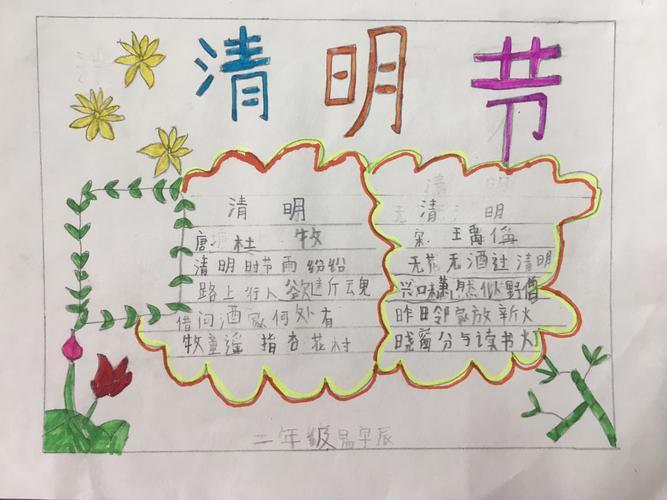 清明节
清明
唐 杜牧
清明时节雨纷纷
路上行人欲断魂
借问酒家何处有
牧童遥指杏花村
清明
宋 王禹偁
无花无酒过清明
兴味萧然似野僧
昨日邻家放新火
晓窗分与读书灯
二年级